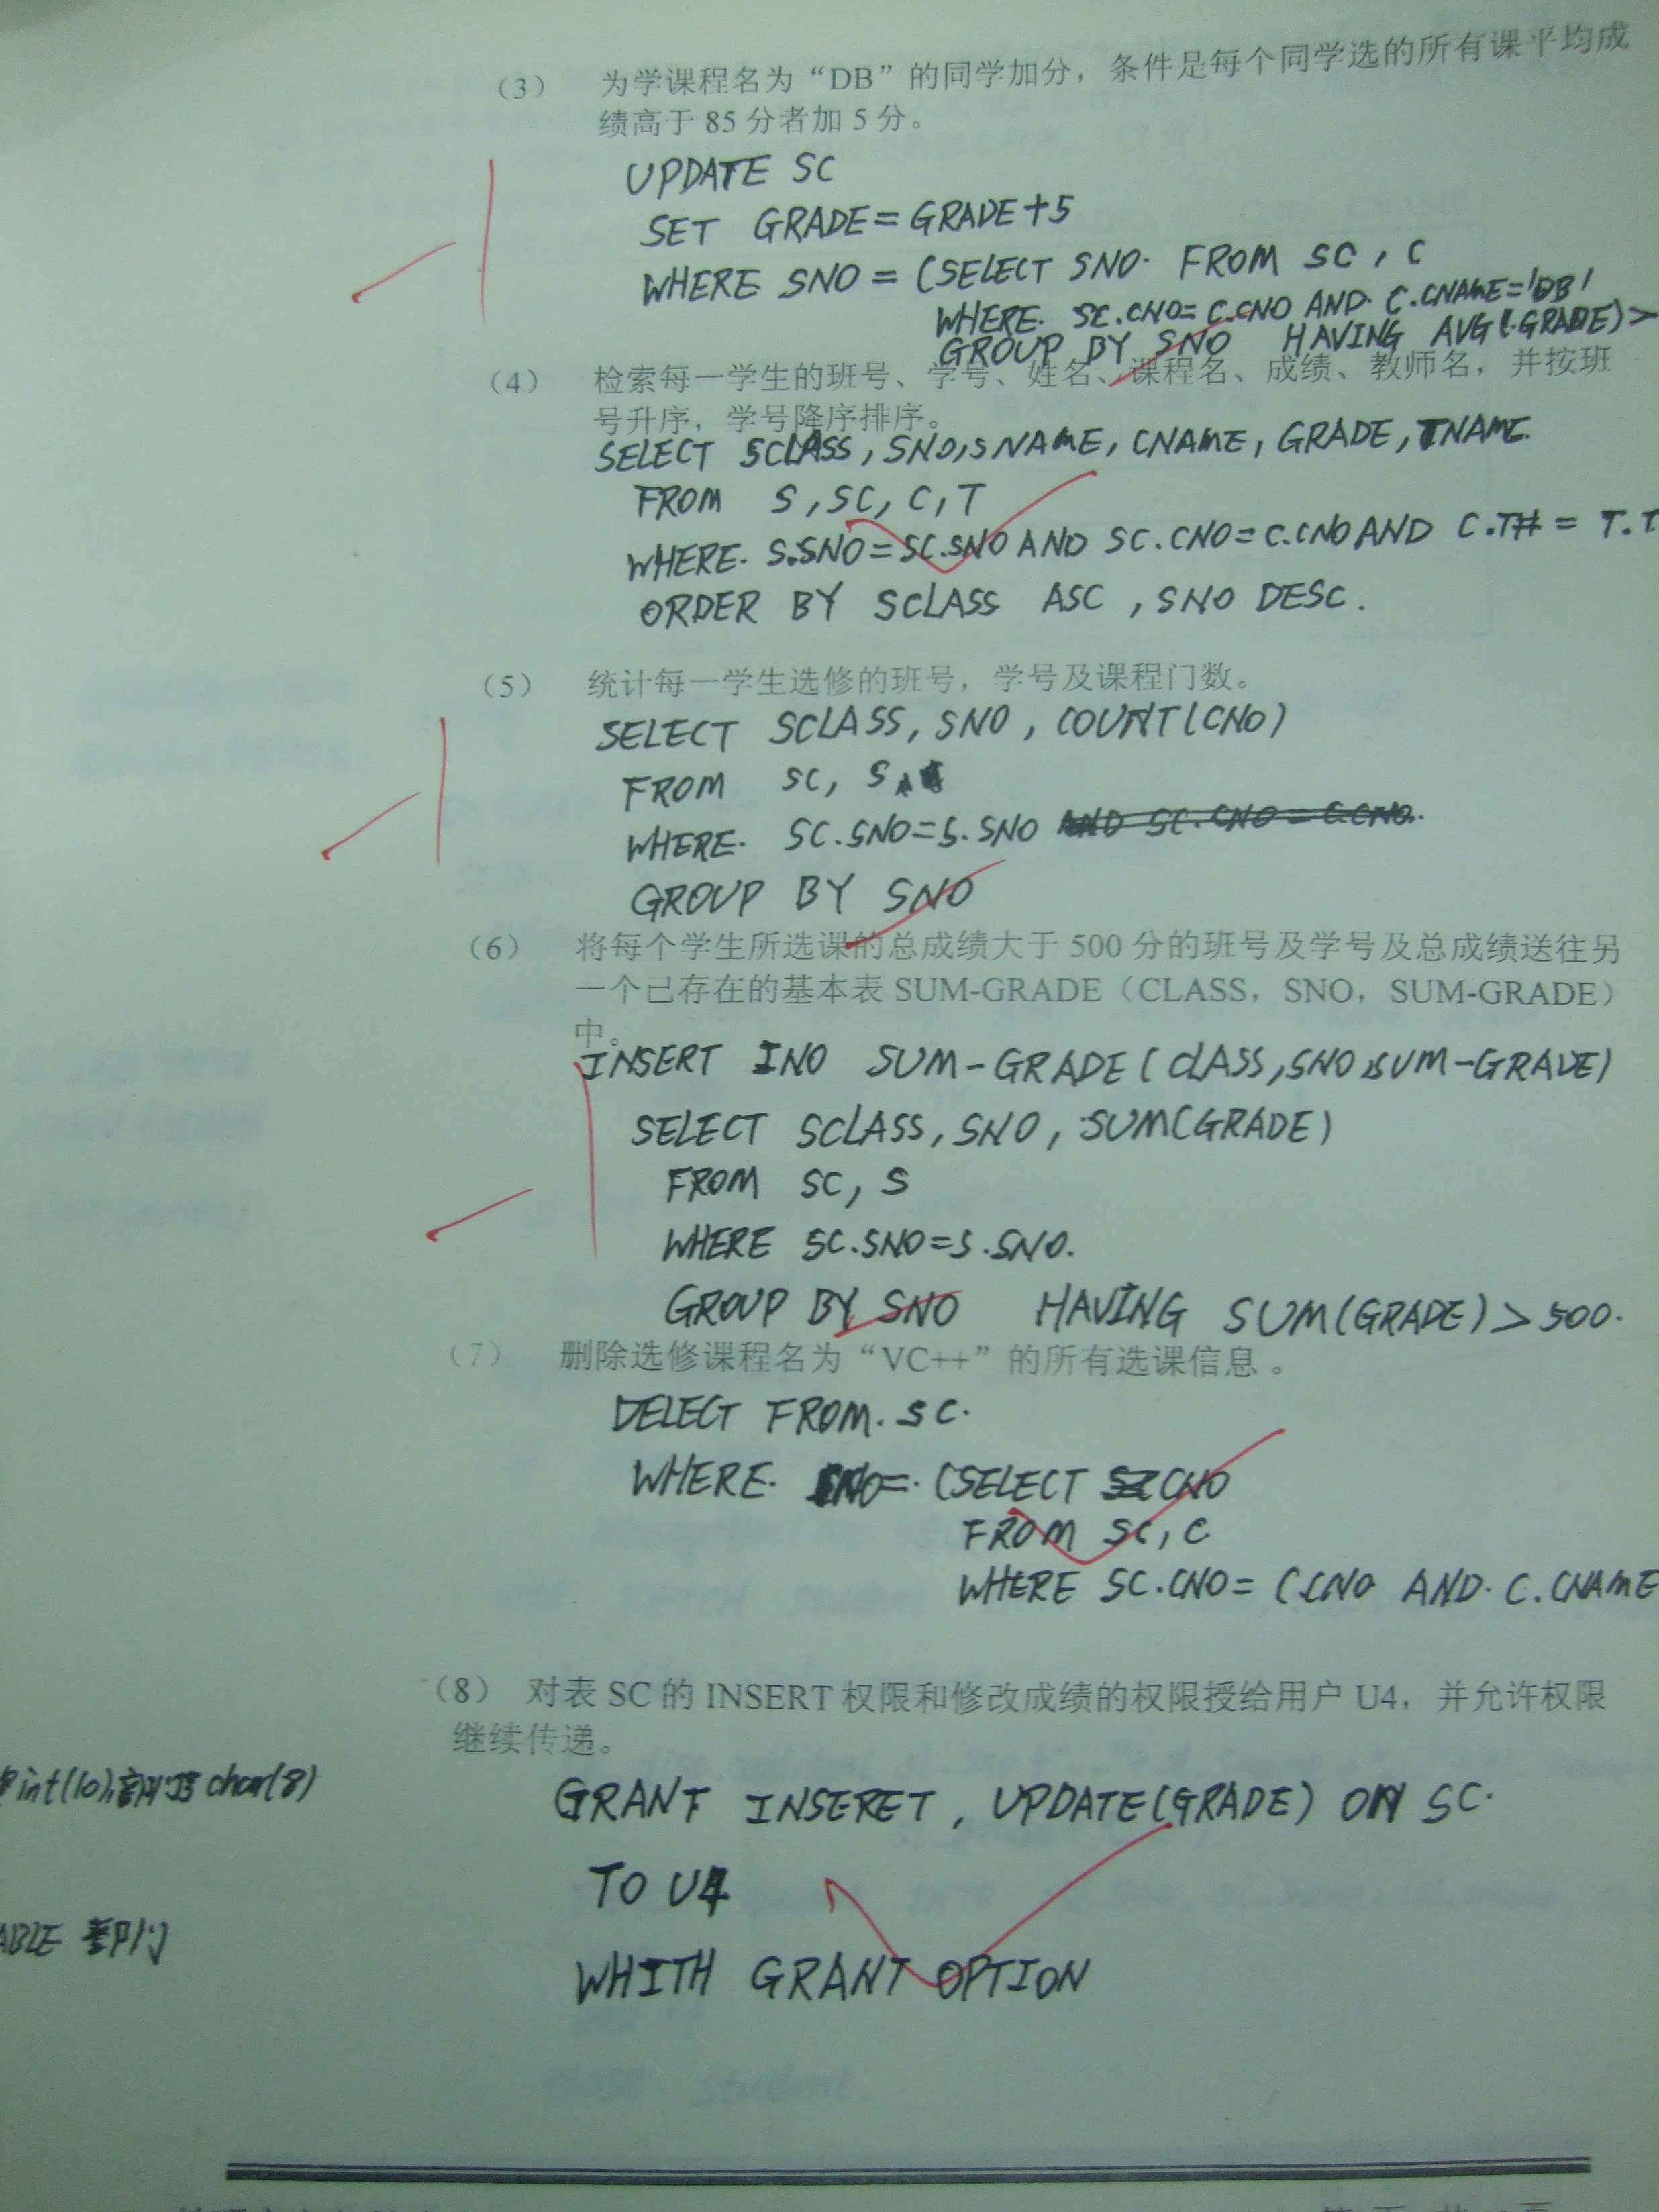 （3） 为学课程名为“DB”的同学加分，条件是每个同学选的所有课平均成
绩高于 85 分者加 5 分。
UPDATE SC
SET GRADE=GRADE+5
WHERE SNO = (SELECT SNO FROM SC , C
WHERE. SC.CNO=C.CNO AND C.CNAME='DB'
GROUP BY SNO HAVING AVG(GRADE)>
（4） 检索每一学生的班号、学号、姓名、课程名、成绩、教师名，并按班
号升序，学号降序排序。
SELECT SCLASS, SNO, SNAME, CNAME, GRADE, TNAME.
FROM S, SC, C, T
WHERE. S.SNO=SC.SNO AND SC.CNO=C.CNO AND C.T# = T.T
ORDER BY SCLASS ASC , SNO DESC.
（5） 统计每一学生选修的班号，学号及课程门数。
SELECT SCLASS, SNO, COUNT(CNO)
FROM SC, S
WHERE. SC.SNO=S.SNO AND SC.CNO=C.CNO.
GROUP BY SNO
（6） 将每个学生所选课的总成绩大于 500 分的班号及学号及总成绩送往另
一个已存在的基本表 SUM-GRADE（CLASS，SNO，SUM-GRADE）
中。
INSERT INO SUM-GRADE(CLASS,SNO,SUM-GRADE)
SELECT SCLASS, SNO, SUM(GRADE)
FROM SC, S
WHERE SC.SNO=S.SNO.
GROUP BY SNO HAVING SUM(GRADE)>500.
（7） 删除选修课程名为“VC++”的所有选课信息 。
DELECT FROM. SC.
WHERE. =(SELECT CNO
FROM SC, C
WHERE SC.CNO= C.CNO AND. C.CNAME
（8） 对表 SC 的 INSERT 权限和修改成绩的权限授给用户 U4，并允许权限
继续传递。
int(10), char(8)
GRANT INSERET, UPDATE(GRADE) ON SC.
TO U4
ABLE
WHITH GRANT OPTION